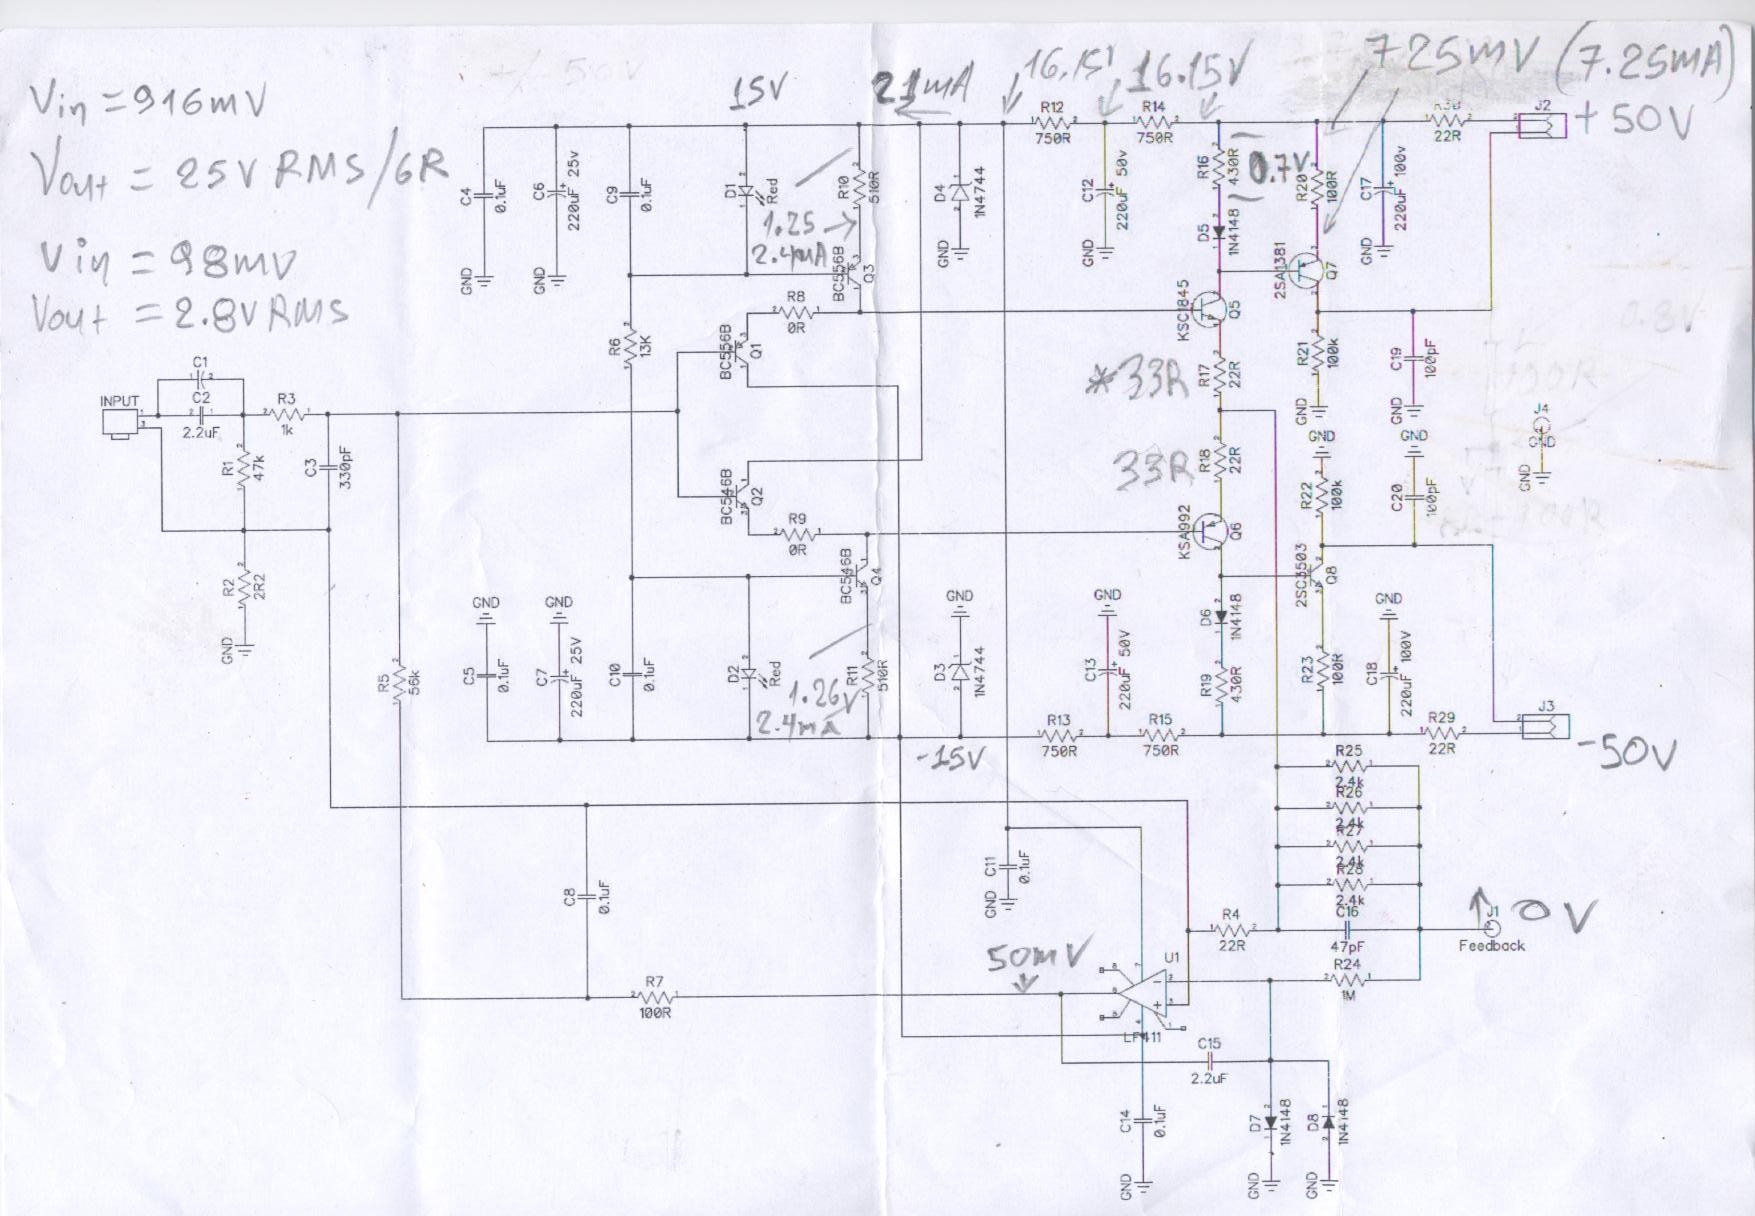 Vin = 916mV
Vout = 25V RMS/6R
Vin = 98mV
Vout = 2.8V RMS
+/- 50V
15V
21mA
16.15'
16.15V
725mV (7.25mA)
+50V
R12
750R
R14
750R
22R
J2
C4
0.1uF
GND
C6
220uF 25v
GND
C9
0.1uF
D1
Red
R10
510R
1.25
2.4mA
BC556B
Q3
D4
1N4744
GND
C12
220uF 50v
GND
R16
430R
0.7V
D5
1N4148
R20
100R
2SA1381
Q7
C17
220uF 100v
GND
R6
13K
R8
0R
BC556B
Q1
KSC1845
Q5
*33R
R17
22R
R21
100k
GND
C19
100pF
GND
0.8V
INPUT
C1
C2
2.2uF
R3
1k
R1
47k
C3
330pF
R2
2R2
GND
BC546B
Q2
R9
0R
BC546B
Q4
33R
R18
22R
KSA992
Q6
GND
R22
100k
GND
C20
100pF
J4
GND
GND
2SC3503
Q8
R5
56k
GND
C5
0.1uF
GND
C7
220uF 25V
C10
0.1uF
D2
Red
R11
510R
1.26V
2.4mA
GND
D3
1N4744
GND
C13
220uF 50V
D6
1N4148
R19
430R
R23
100R
GND
C18
220uF 100V
-15V
R13
750R
R15
750R
R29
22R
J3
-50V
R25
2.4k
R26
2.4k
R27
2.4k
R28
2.4k
C16
47pF
R24
1M
J1
Feedback
0V
C8
0.1uF
C11
0.1uF
GND
R4
22R
50mV
U1
LF411
R7
100R
C15
2.2uF
C14
0.1uF
GND
D7
1N4148
GND
D8
1N4148
GND